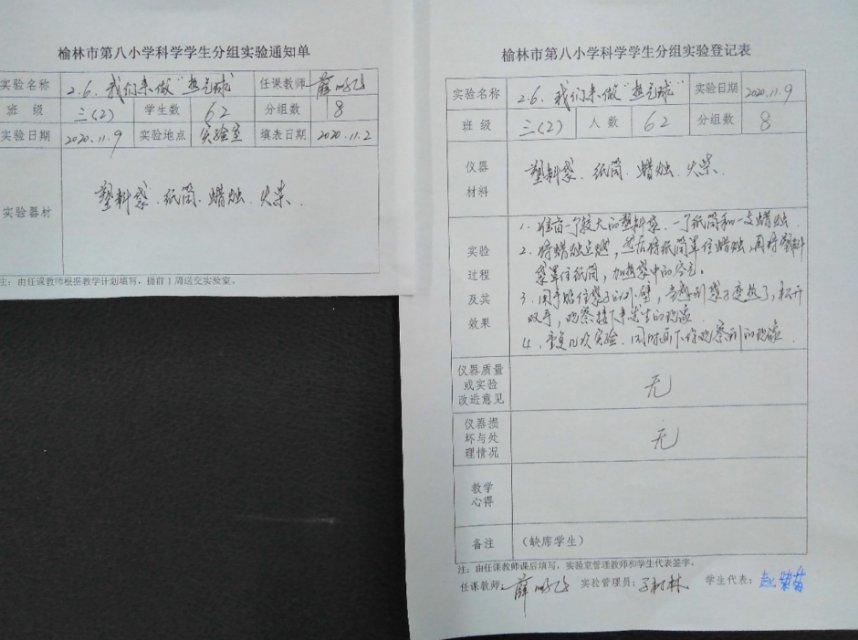 榆林市第八小学科学学生分组实验通知单
实验名称 2.6、我们来做"热气球" 任课教师 薛
班 级 三(2) 学生数 62 分组数 8
实验日期 2020.11.9 实验地点 实验室 填表日期 2020.11.2
实验器材 塑料袋、纸筒、蜡烛、火柴.
注：由任课教师根据教学计划填写，提前1周送交实验室。
榆林市第八小学科学学生分组实验登记表
实验名称 2.6、我们来做"热气球" 实验日期 2020.11.9
班 级 三(2) 人 数 62 分组数 8
仪器
材料
塑料袋、纸筒、蜡烛、火柴.
实验
过程
及其
效果
1、准备一个较大的塑料袋、一个纸筒和一支蜡烛.
2、将蜡烛点燃，然后将纸筒罩住蜡烛，再将塑料
袋罩住纸筒，加热袋中的空气。
3、用手贴住袋子的外壁，当感到袋子变热了，松开
双手，观察接下来发生的现象.
4、重复几次实验、同时画下你观察到的现象.
仪器质量
或实验
改进意见
无
仪器损
坏与处
理情况
无
教学
心得
备注 （缺席学生）
注：由任课教师课后填写，实验室管理教师和学生代表签字。
任课教师：薛 实验管理员： 学生代表：赵